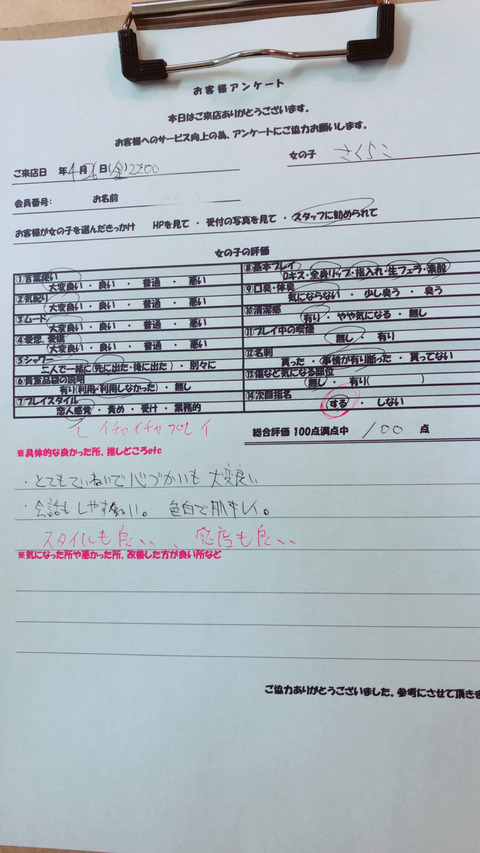 お客様アンケート
本日はご来店ありがとうございます。
お客様へのサービス向上の為、アンケートにご協力お願いします。
ご来店日 年4月26日(金)22:00
女の子 さくらこ
会員番号: お名前
お客様が女の子を選んだきっかけ HPを見て ・ 受付の写真を見て ・ スタッフに勧められて
女の子の評価
①言葉使い
大変良い ・ 良い ・ 普通 ・ 悪い
②気配り
大変良い ・ 良い ・ 普通 ・ 悪い
③ムード
大変良い ・ 良い ・ 普通 ・ 悪い
④愛想、愛嬌
大変良い ・ 良い ・ 普通 ・ 悪い
⑤シャワー
二人で一緒に(先に出た・後に出た) ・ 別々に
⑥貴重品袋の説明
有り(利用・利用しなかった) ・ 無し
⑦プレイスタイル
恋人感覚 ・ 責め ・ 受け ・ 業務的
⑧基本プレイ
Dキス・全身リップ・指入れ・生フェラ・素股
⑨口臭・体臭
気にならない ・ 少し臭う ・ 臭う
⑩清潔感
有り ・ やや気になる ・ 無し
⑪プレイ中の喫煙
無し ・ 有り
⑫名刺
貰った ・ (事情が有り断った ・ 貰ってない
⑬傷など気になる部位
無し ・ 有り(
⑭次回指名
する ・ しない
イチャイチャプレイ
総合評価 100点満点中 100 点
※具体的な良かった所、推しどころetc
・とてもていねいで心づかいも大変良い
・会話もしやすい。 色白で肌キレイ。
スタイルも良い、感度も良い
※気になった所や悪かった所、改善した方が良い所など
ご協力ありがとうございました。参考にさせて頂きま